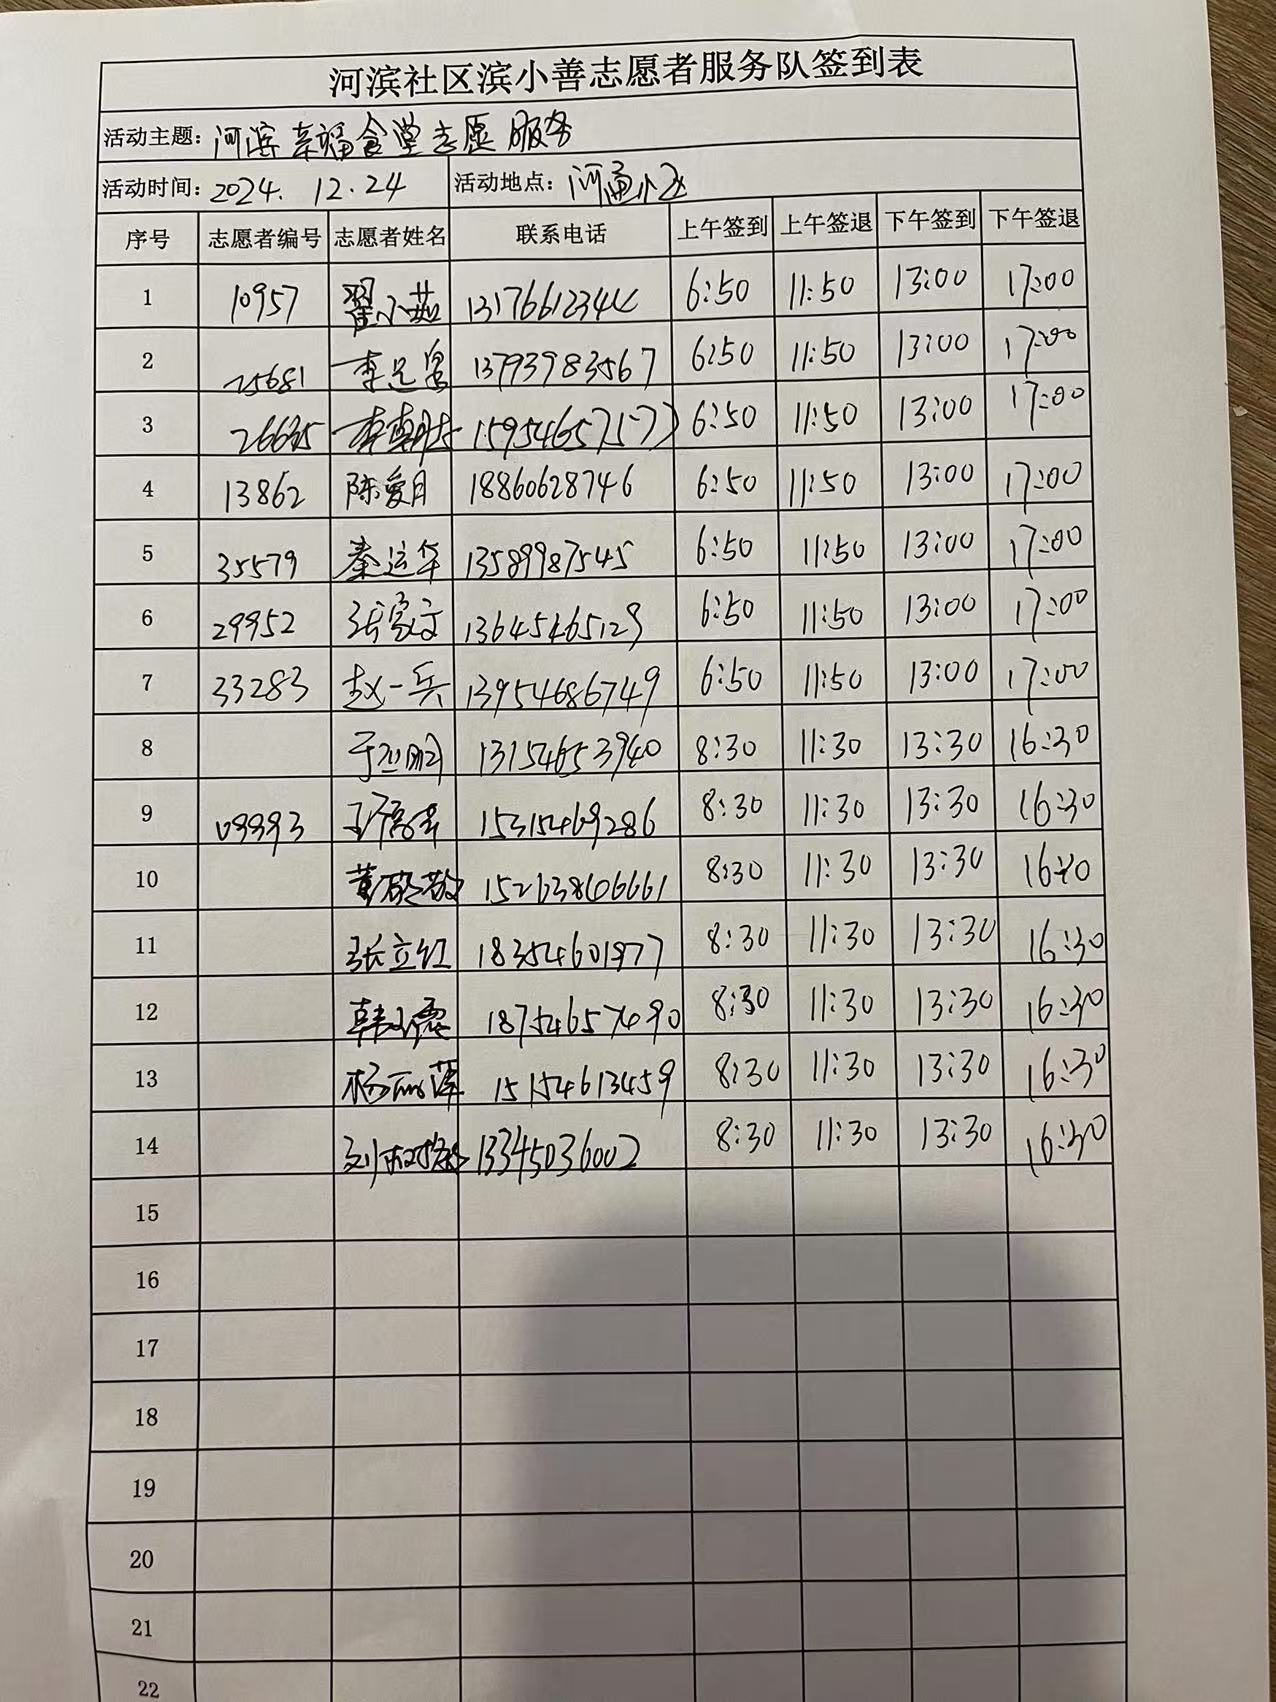 河滨社区滨小善志愿者服务队签到表
活动主题：河滨幸福食堂志愿服务
活动时间：2024.12.24 活动地点：河滨小区
序号 志愿者编号 志愿者姓名 联系电话 上午签到 上午签退 下午签到 下午签退
1 10957 翟小茹 6:50 11:50 13:00 17:00
2 25681 13793983567 6:50 11:50 13:00 17:00
3 6:50 11:50 13:00 17:00
4 13862 陈爱月 18860628746 6:50 11:50 13:00 17:00
5 35579 秦运华 13589987545 6:50 11:50 13:00 17:00
6 29952 张家文 13645465129 6:50 11:50 13:00 17:00
7 33283 赵一兵 13954686749 6:50 11:50 13:00 17:00
8 13154653940 8:30 11:30 13:30 16:30
9 09993 15315469286 8:30 11:30 13:30 16:30
10 8:30 11:30 13:30
11 张立红 18354601977 8:30 11:30 13:30 16:30
12 18754657490 8:30 11:30 13:30 16:30
13 杨丽萍 15154613459 8:30 11:30 13:30 16:30
14 13345036002 8:30 11:30 13:30 16:30
15
16
17
18
19
20
21
22